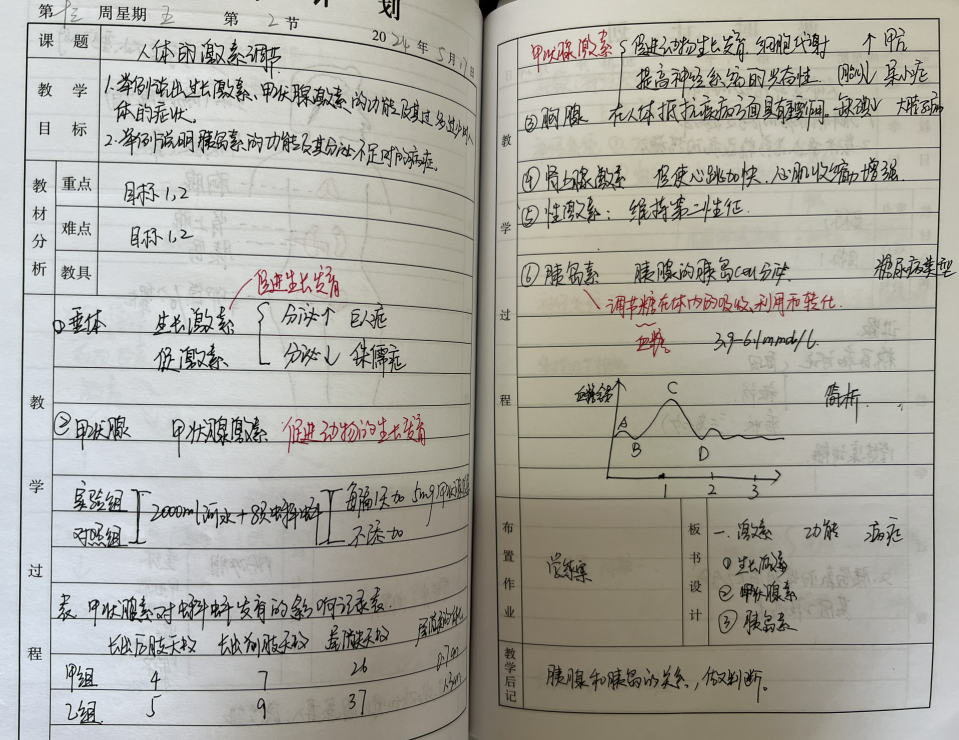 计 划
第十三周星期五 第2节 2024年5月17日
课题 人体的激素调节
教学目标 1.举例说出生长激素、甲状腺激素的功能及其过多过少时人
体的症状。
2.举例说明胰岛素的功能及其分泌不足时的病症。
教材分析
重点 目标1,2
难点 目标1,2
教具
教学过程
促进生长发育
①垂体 生长激素 分泌↑ 巨人症
促激素 分泌↓ 侏儒症
②甲状腺 甲状腺激素 促进动物的生长发育
实验组 2000ml河水+8只蝌蚪 每隔1天加5mg甲状腺激素
对照组 不添加
表 甲状腺素对蝌蚪发育的影响记录表.
长出后肢天数 长出前肢天数 尾消失天数
甲组 4 7 26 0.7cm
乙组 5 9 37 1.3cm
教学过程
甲状腺激素 促进动物生长发育 细胞代谢 ↑甲亢
提高神经系统的兴奋性 ↓呆小症
③胸腺 在人体抵抗疾病方面具有重要作用.
④肾上腺激素 促使心跳加快、心肌收缩力增强.
⑤性激素: 维持第二性征.
⑥胰岛素 胰腺的胰岛cell分泌 糖尿病类型
调节糖在体内的吸收、利用和转化.
血糖 3.9-6.1mmol/L.
C
A
简析.
B D
1 2 3
布置作业 学练案
板书设计 一.激素 功能 病症
①生长激素
②甲状腺素
③胰岛素
教学后记 胰腺和胰岛的关系,做判断。